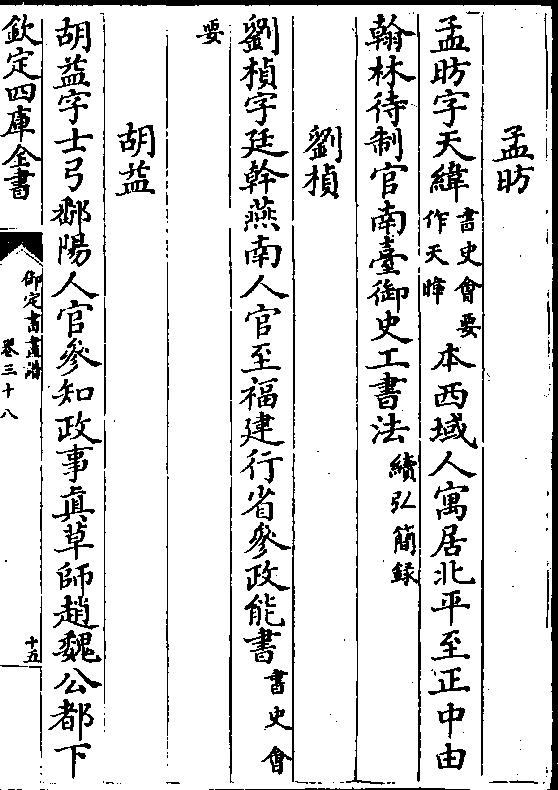 孟昉
孟昉字天緯書史會要作天暐本西域人寓居北平至正中由
翰林待制官南臺御史工書法續弘簡録
劉楨
劉楨字廷幹燕南人官至福建行省參政能書書史會
要
胡益
胡益字士弓鄱陽人官參知政事真草師趙魏公都下
欽定四庫全書
御定書畫譜
卷三十八
十五